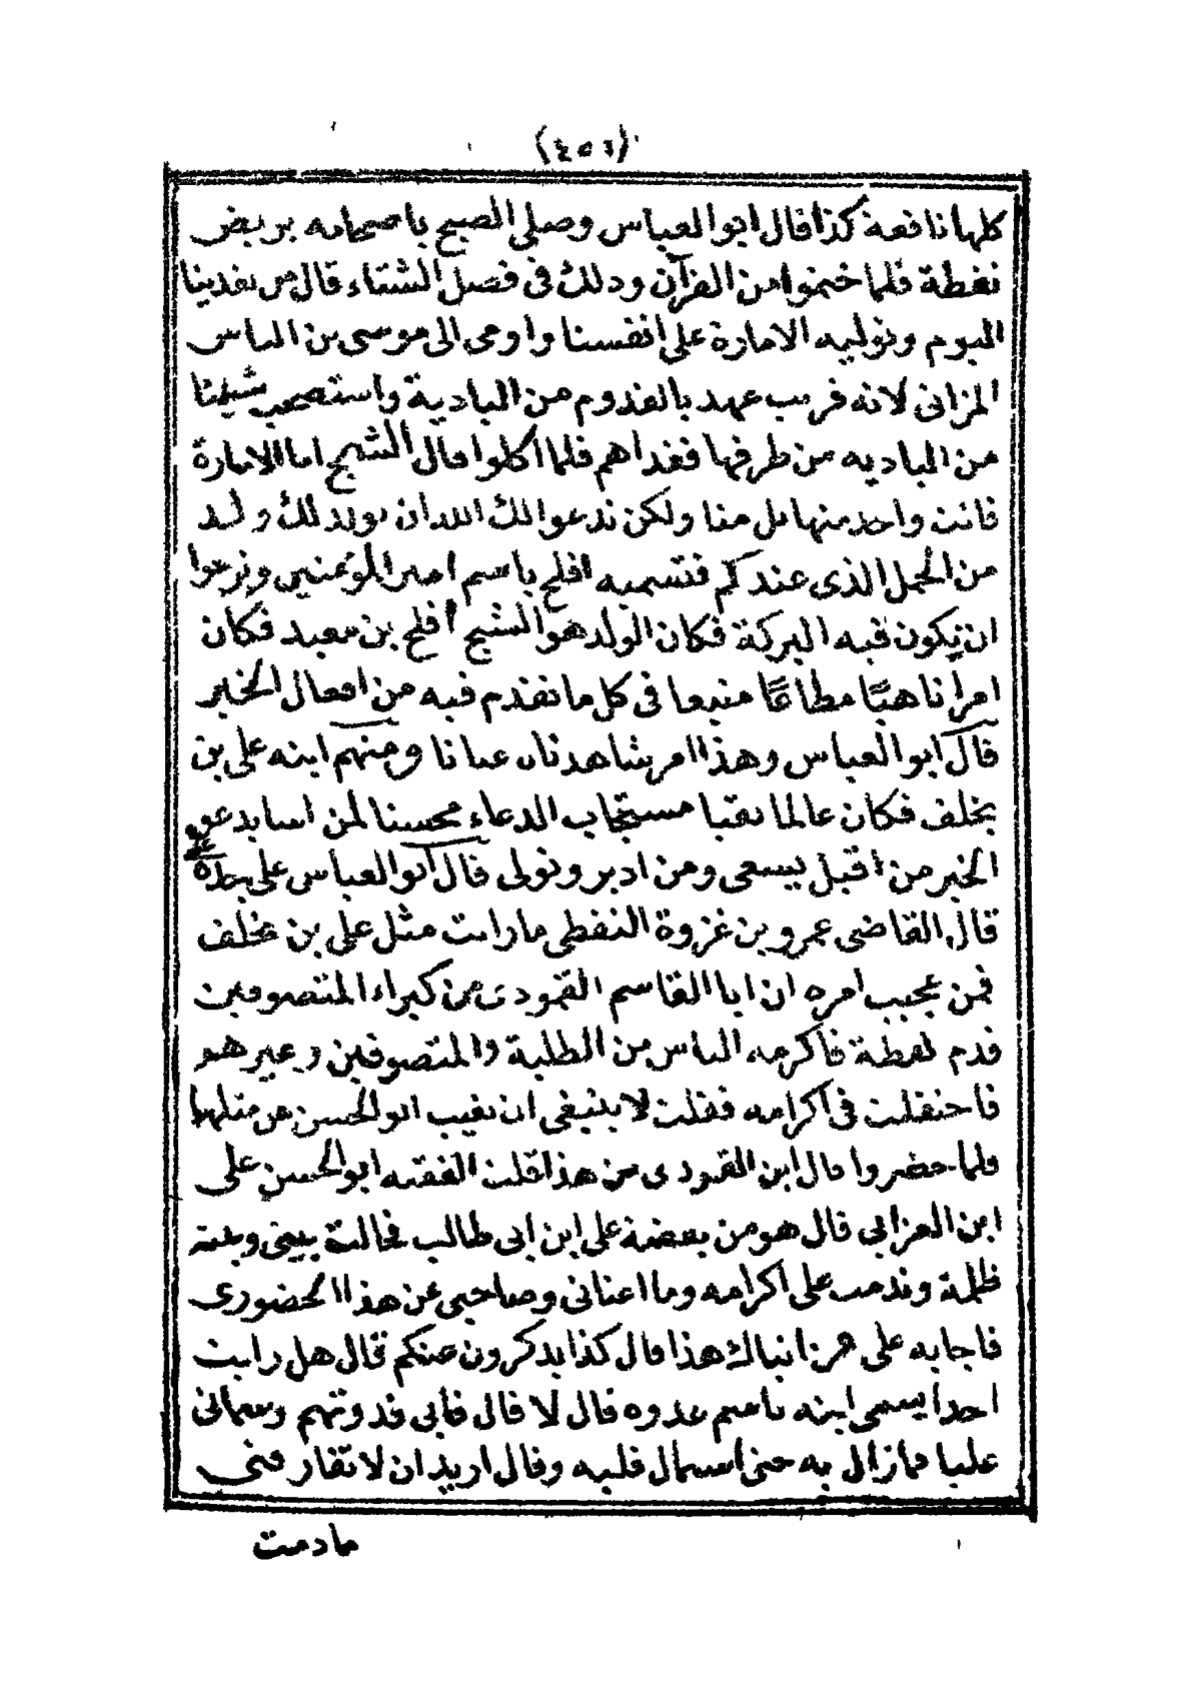 (٤٥٦)
كلها نافعة كذا قال ابو العباس وصلي الصبح باصحابه بربض
نفطة فلما ختموا من القرآن وذلك فى فصل الشتاء قال من يغدينا
اليوم ونوليه الامارة على انفسنا واومى الى موسى بن الياس
المزاتى لانه قريب عهد بالقدوم من البادية واستصحب شيئا
من الباديه من طرفها فغداهم فلما اكلوا قال الشيخ اما الامارة
فانت واحد منها بل منا ولكن ندعوا لك الله ان يولد لك ولد
من الحمل الذى عندكم فتسميه افلح باسم امير المؤمنين ونرجوا
ان تكون فيه البركة فكان الولد هو الشيخ أفلح بن معبد فكان
امرا ناهيًا مطاعًا متبعا فى كل ما تقدم فيه من افعال الخير
قال ابو العباس وهذا امر شاهدناه عيانا ومنهم ابنه على بن
يخلف فكان عالما تقيا مستجاب الدعاء محسنا لمن اسا يدعو
الخير من اقبل يسعى ومن ادبر وتولى قال ابو العباس على جده
قال القاضى عمرو بن غزوة النفطى ما رايت مثل على بن يخلف
فمن عجيب امره ان ابا القاسم القمودى من كبراء المتصوفين
قدم نفطة فاكرمه الناس من الطلبة والمتصوفين وغيرهم
فاحتفلت فى اكرامه فقلت لا ينبغى ان نغيب ابو الحسن من مثلها
فلما حضروا قال ابن القمودى من هذا قلت الفقيه ابو الحسن على
ابن العزابي قال هو من بغضة على ابن ابى طالب فحالت بينى وبينه
ظلمة وندمت على اكرامه وما اعنانى وصاحبى عن هذا الحضورى
فاجابه على من انباك هذا قال كذا يذكرون عنكم قال هل رايت
احدا يسمى ابنه باسم عدوه قال لا قال فابى قدوتهم وسمانى
عليا فما زال به حتى استمال قلبه وقال اريد ان لا تفارقنى
مادمت